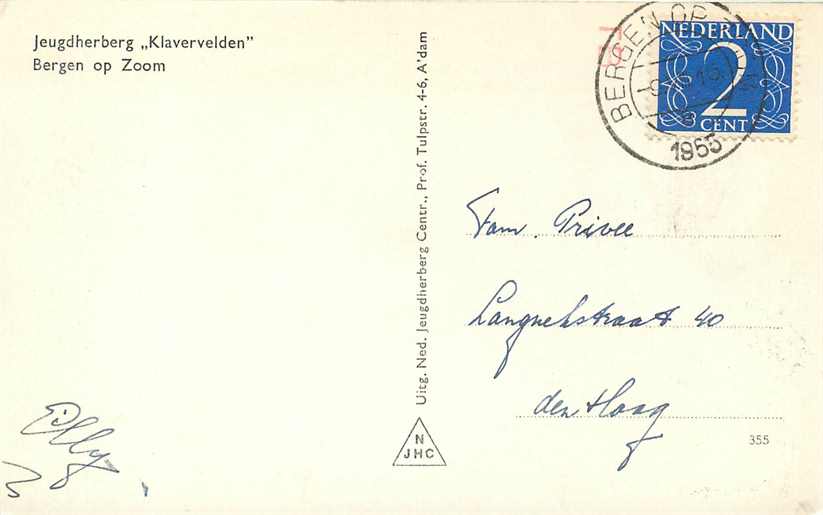 Jeugdherberg „Klavervelden”
Bergen op Zoom
Uitg. Ned. Jeugdherberg Centr., Prof. Tulpstr. 4-6, A'dam
N
JHC
BERGEN OP
1955
NEDERLAND
2
CENT
Fam. Privee
40
den Haag
355
Elly